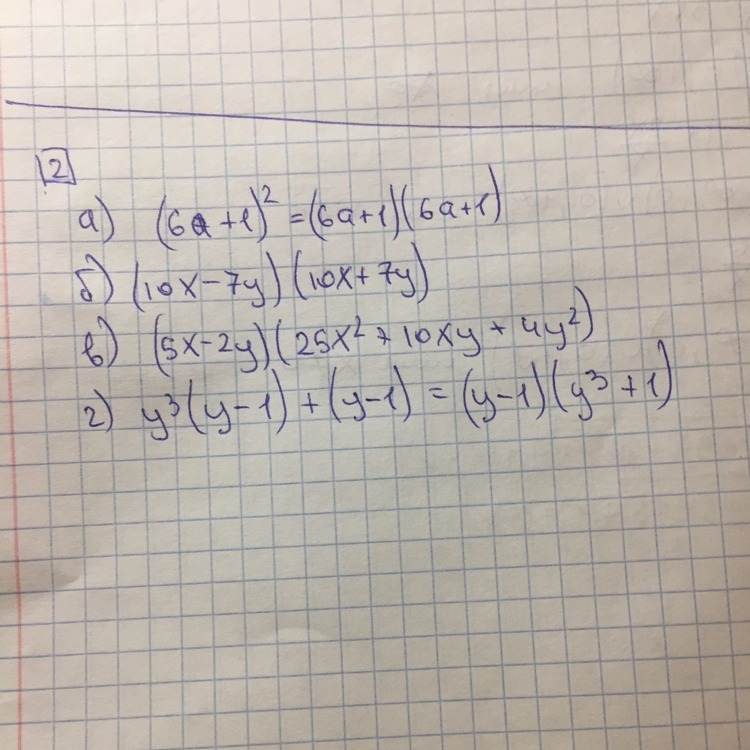 2
а) (6a+1)² = (6a+1)(6a+1)
б) (10x-7y)(10x+7y)
в) (5x-2y)(25x²+10xy+4y²)
г) y³(y-1)+(y-1) = (y-1)(y³+1)